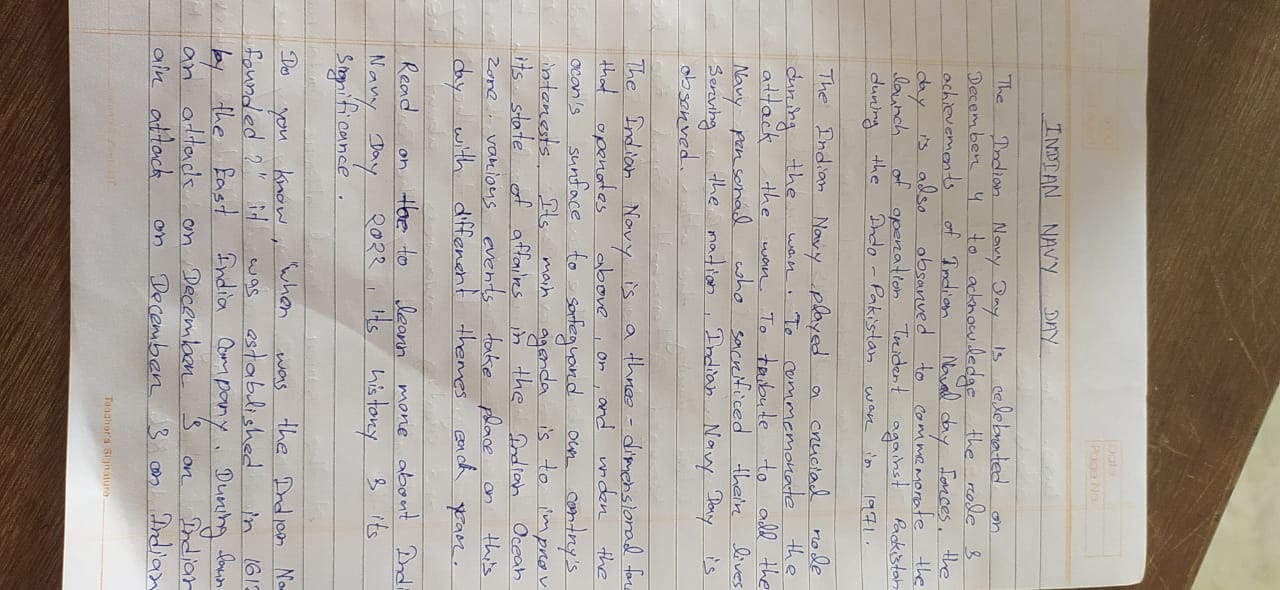 Date
Page No.
INDIAN NAVY DAY
The Indian Navy Day is celebrated on
December 4 to acknowledge the role &
achievements of Indian Naval day Forces. the
day is also observed to commemorate the
launch of operation Trident against Pakistan
during the Indo-Pakistan war in 1971.
The Indian Navy played a crucial role
during the war. To commemorate the
attack the war. To tribute to all the
Navy personal who sacrificed their lives
serving the nation, Indian Navy Day is
observed.
The Indian Navy is a three-dimensional
that operates above, on, and under the
ocan's surface to safeguard our contry's
interests. Its main agenda is to improv
its state of affairs in the Indian Ocean
zone. various events take place on this
day with different themes each year.
Read on to learn more about Indi
Navy Day 2022, its history & its
Significance.
Do you know, "when was the Indian Na
founded?" it was established in 161
by the East India Company. During
an attack on December 3 on Indian
air attack on December 3 on Indian
Teachers Signature